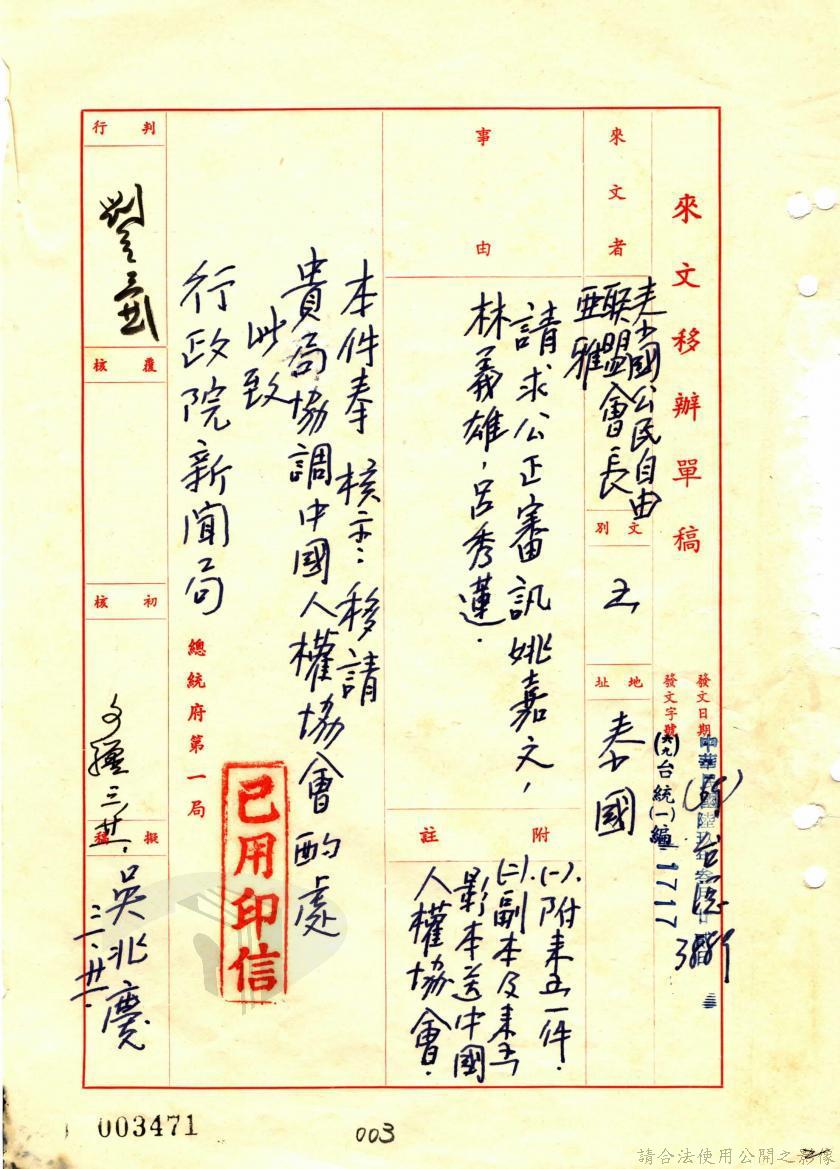 來文移辦單稿
發文日期
發文字號
(六九)台統(一)編1717
來文者
泰國公民自由
聯盟會長
亞雅
文別
函
地址
泰國
事由
請求公正審訊姚嘉文,
林義雄,呂秀蓮.
附註
(一).附來函一件.
(二).副本及來函
影本送中國
人權協會.
本件奉 核示:移請
貴局協調中國人權協會酌處
此致
行政院新聞局
總統府第一局
已用印信
判行
覆核
初核
擬稿
吳兆慶
三.廿一.
003471
003
請合法使用公開之影像